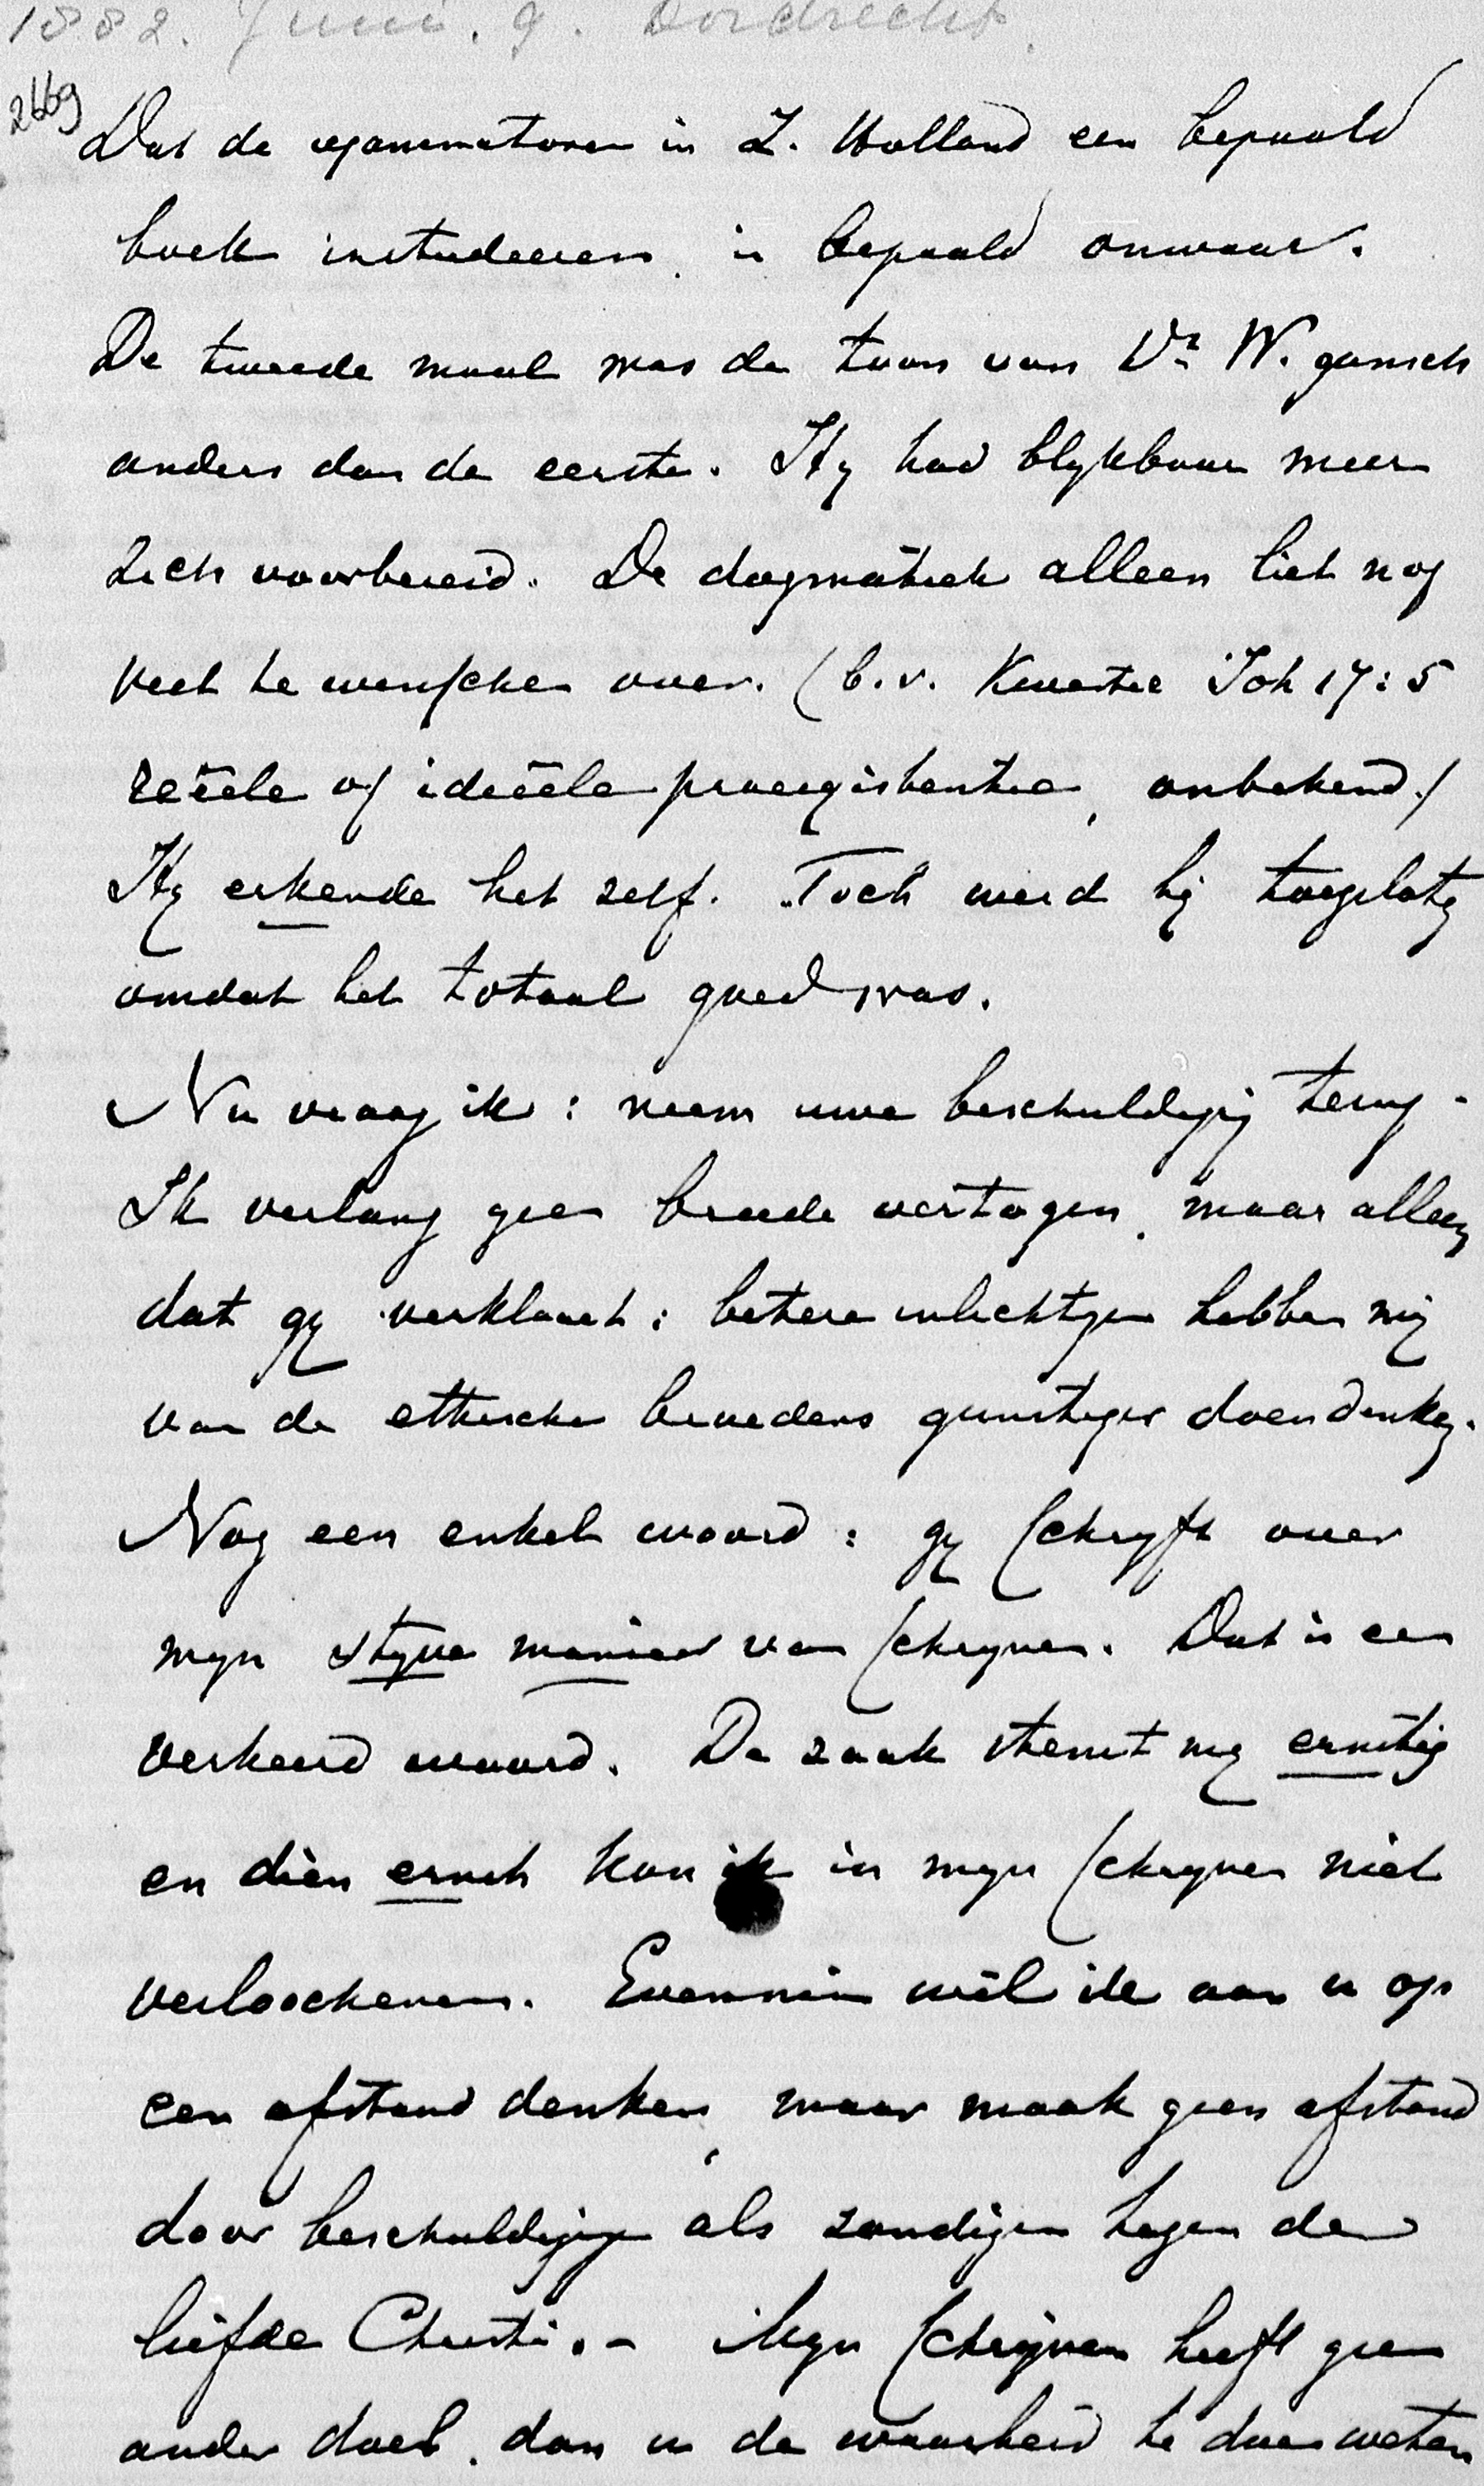 1882. Juni. 9. Dordrecht.
2669
Dat de examinatoren in Z. Holland een bepaald
boek instudeeren, is bepaald onwaar.
De tweede maal was de toon van Dr W. gansch
anders dan de eerste. Hij had blykbaar meer
zich voorbereid. De dogmatiek alleen liet nog
veel te wenschen over. (b.v. Kwestie Joh 17:5
reëele of ideëele praeexistentie, onbekend.)
Hy erkende het zelf. Toch werd hij toegelaten
omdat het totaal goed was.
Nu vraag ik: neem uwe beschuldiging terug.
Ik verlang geen breede vertogen, maar alleen
dat gy verklaart: betere inlichtingen hebben mij
van de ethische broeders gunstiger doen denken.
Nog een enkel woord: gy schryft over
myn styve manier van schryven. Dat is een
verkeerd woord. De zaak stemt my ernstig
en dien ernst kon ik in myn schryven niet
verloochenen. Evenmin wil ik aan u op
een afstand denken, maar maak geen afstand
door beschuldigingen als zondigen tegen de
liefde Christi. - Myn schrijven heeft geen
ander doel, dan u de waarheid te doen weten